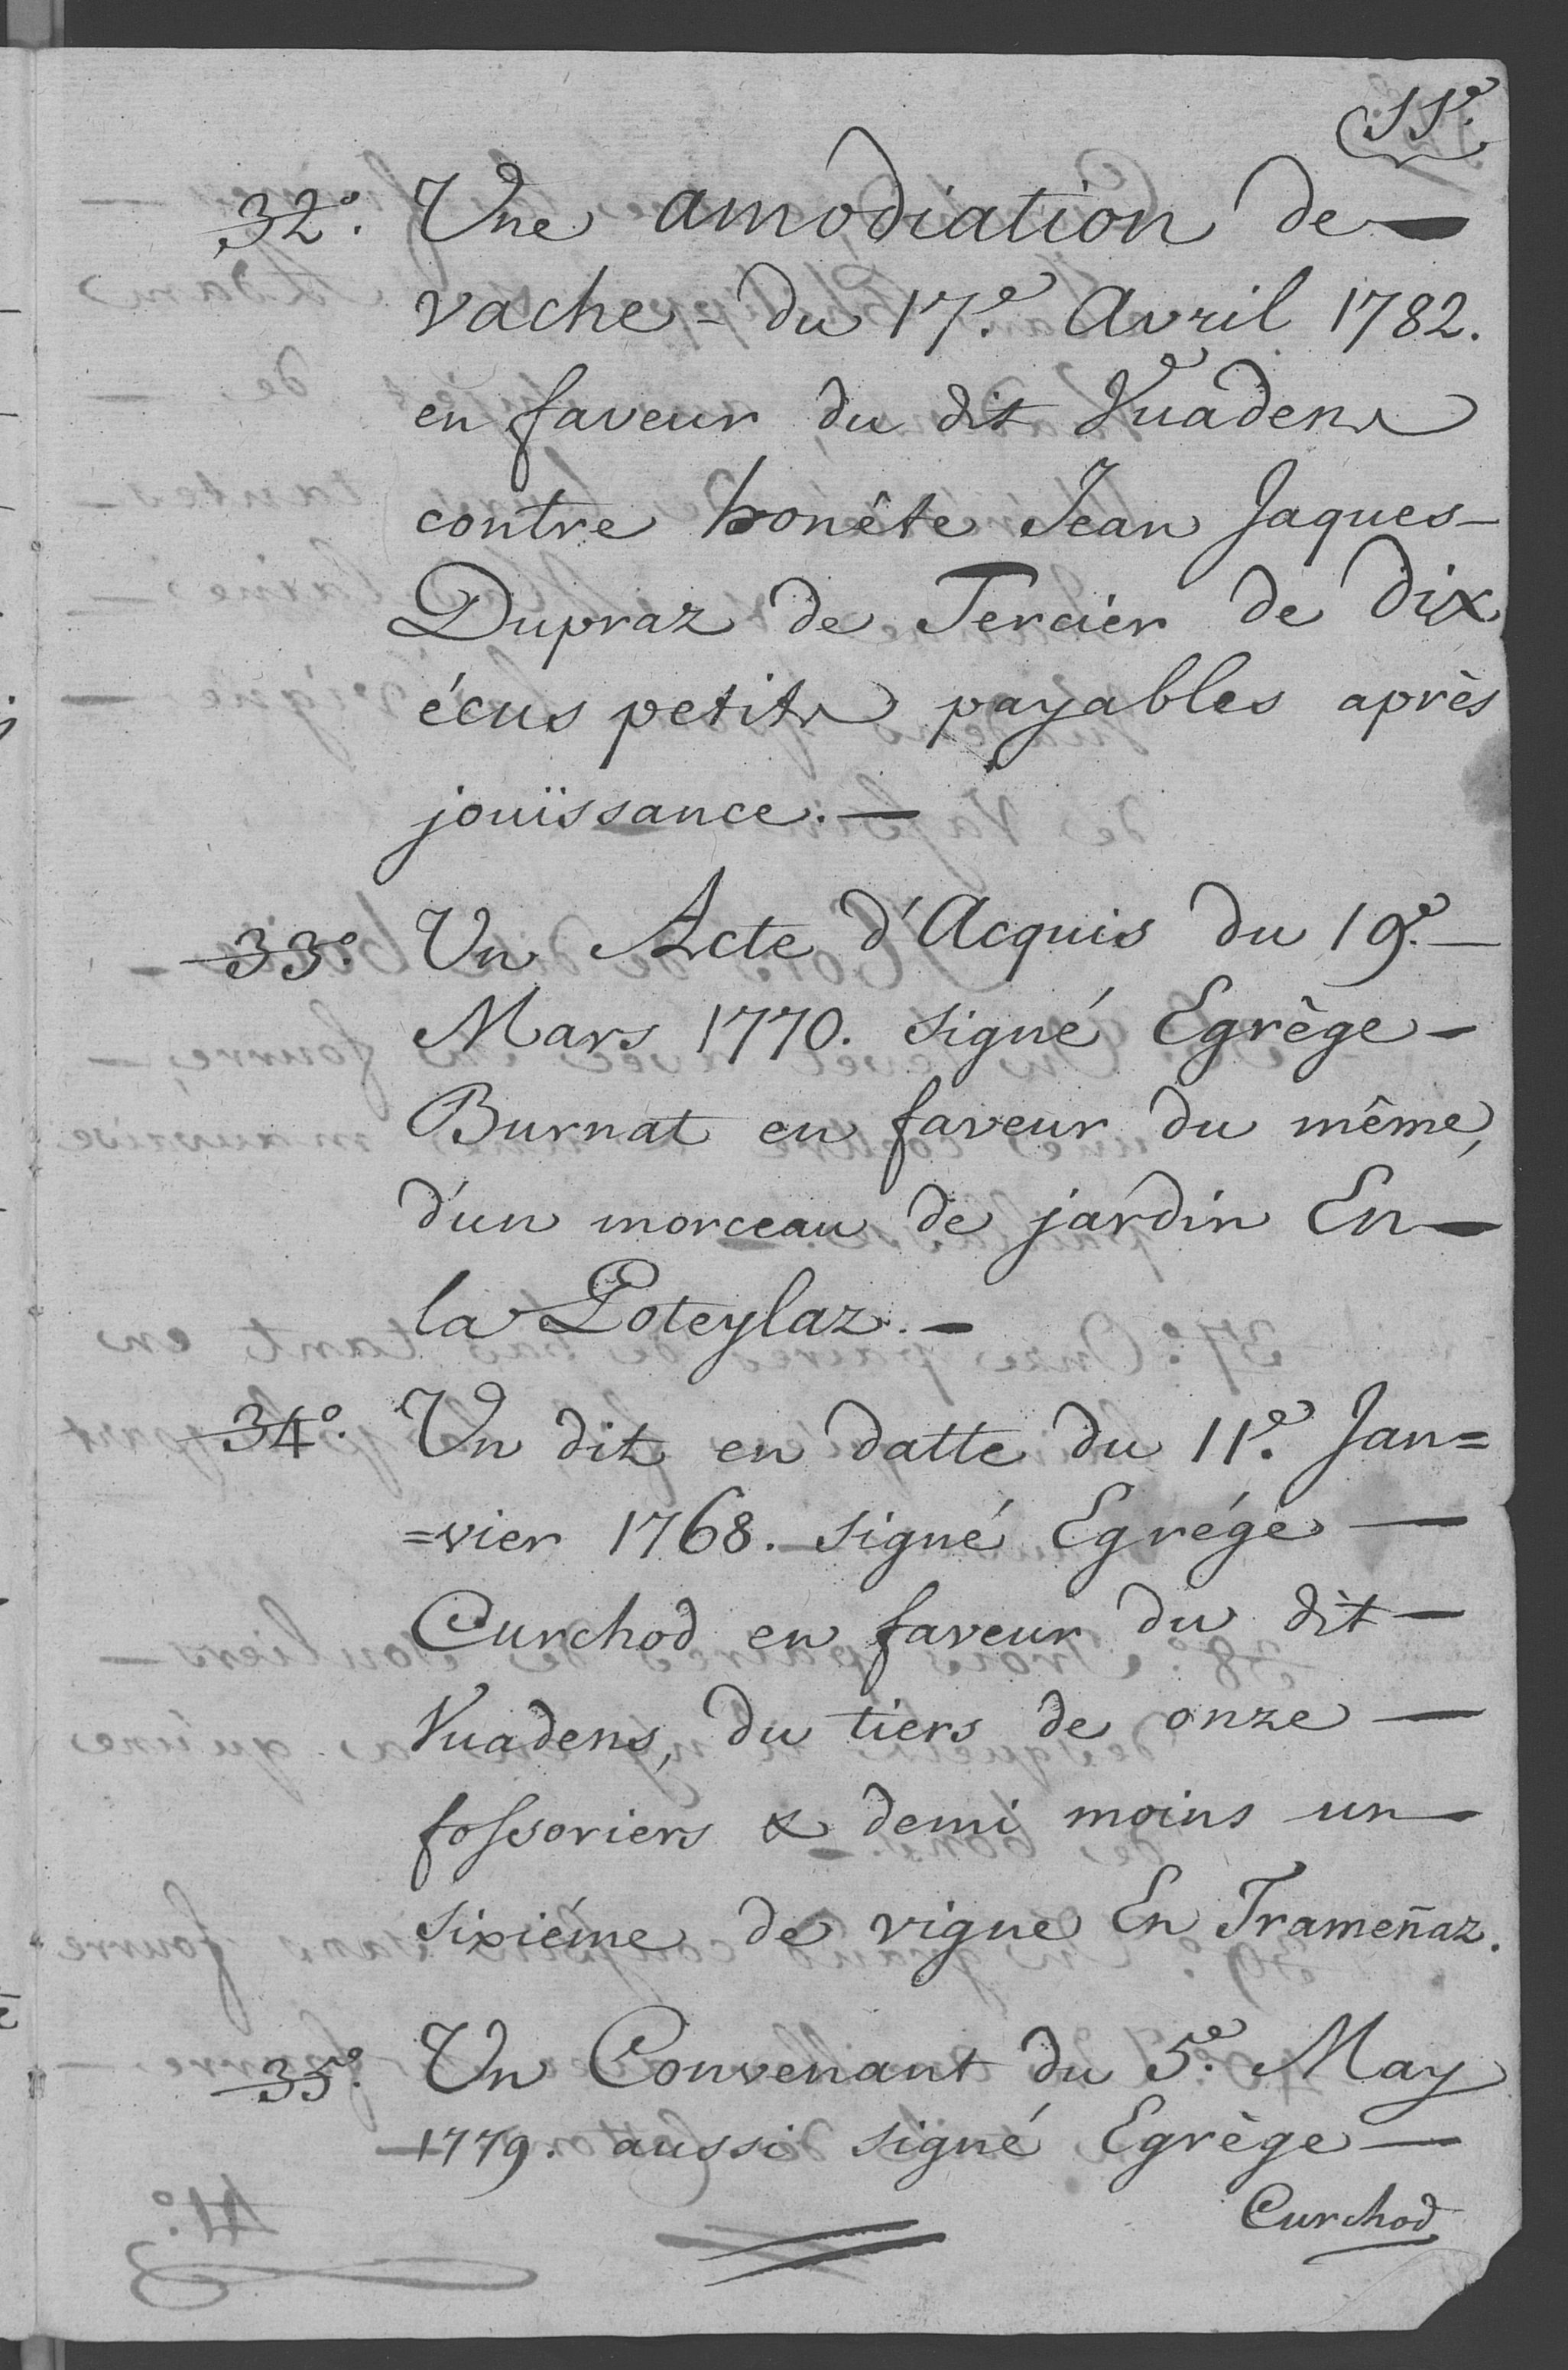 11.e
32.o Une amodiation de —
vache - du 17.e Avril 1782.
en faveur du dit Vuadens
contre honête Jean Jaques —
Dupraz de Tercier de dix
écus petits payables après
jouïssance. —
33.o Un Acte d'Acquis du 19.e —
Mars 1770. signé Egrège —
Burnat en faveur du même,
d'un morceau de jardin En —
la Poteylaz. —
34.o Un dit en datte du 11.e Jan=
=vier 1768. signé Egrége —
Curchod en faveur du dit —
Vuadens, du tiers de onze —
fossoriers & demi moins un —
sixiéme de vigne En Trameñaz.
35.o Un Convenant du 5.e May
1779. aussi signé Egrège —
Curchod